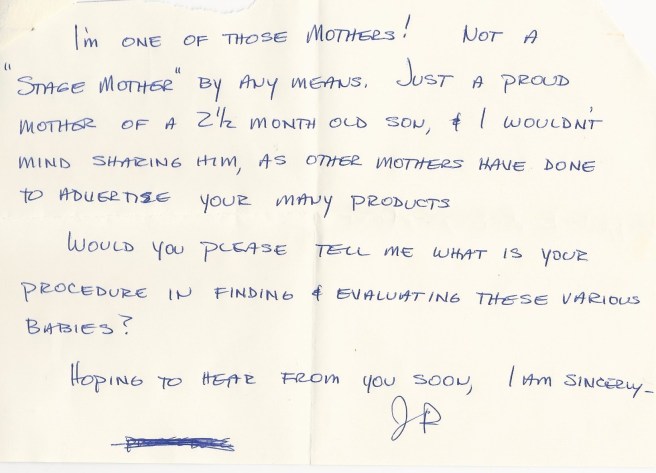 I'm ONE OF THOSE MOTHERS! NOT A
"STAGE MOTHER" BY ANY MEANS. JUST A PROUD
MOTHER OF A 2½ MONTH OLD SON, & I WOULDN'T
MIND SHARING HIM, AS OTHER MOTHERS HAVE DONE
TO ADVERTISE YOUR MANY PRODUCTS
WOULD YOU PLEASE TELL ME WHAT IS YOUR
PROCEDURE IN FINDING & EVALUATING THESE VARIOUS
BABIES?
HOPING TO HEAR FROM YOU SOON, I AM SINCERLY-
JR